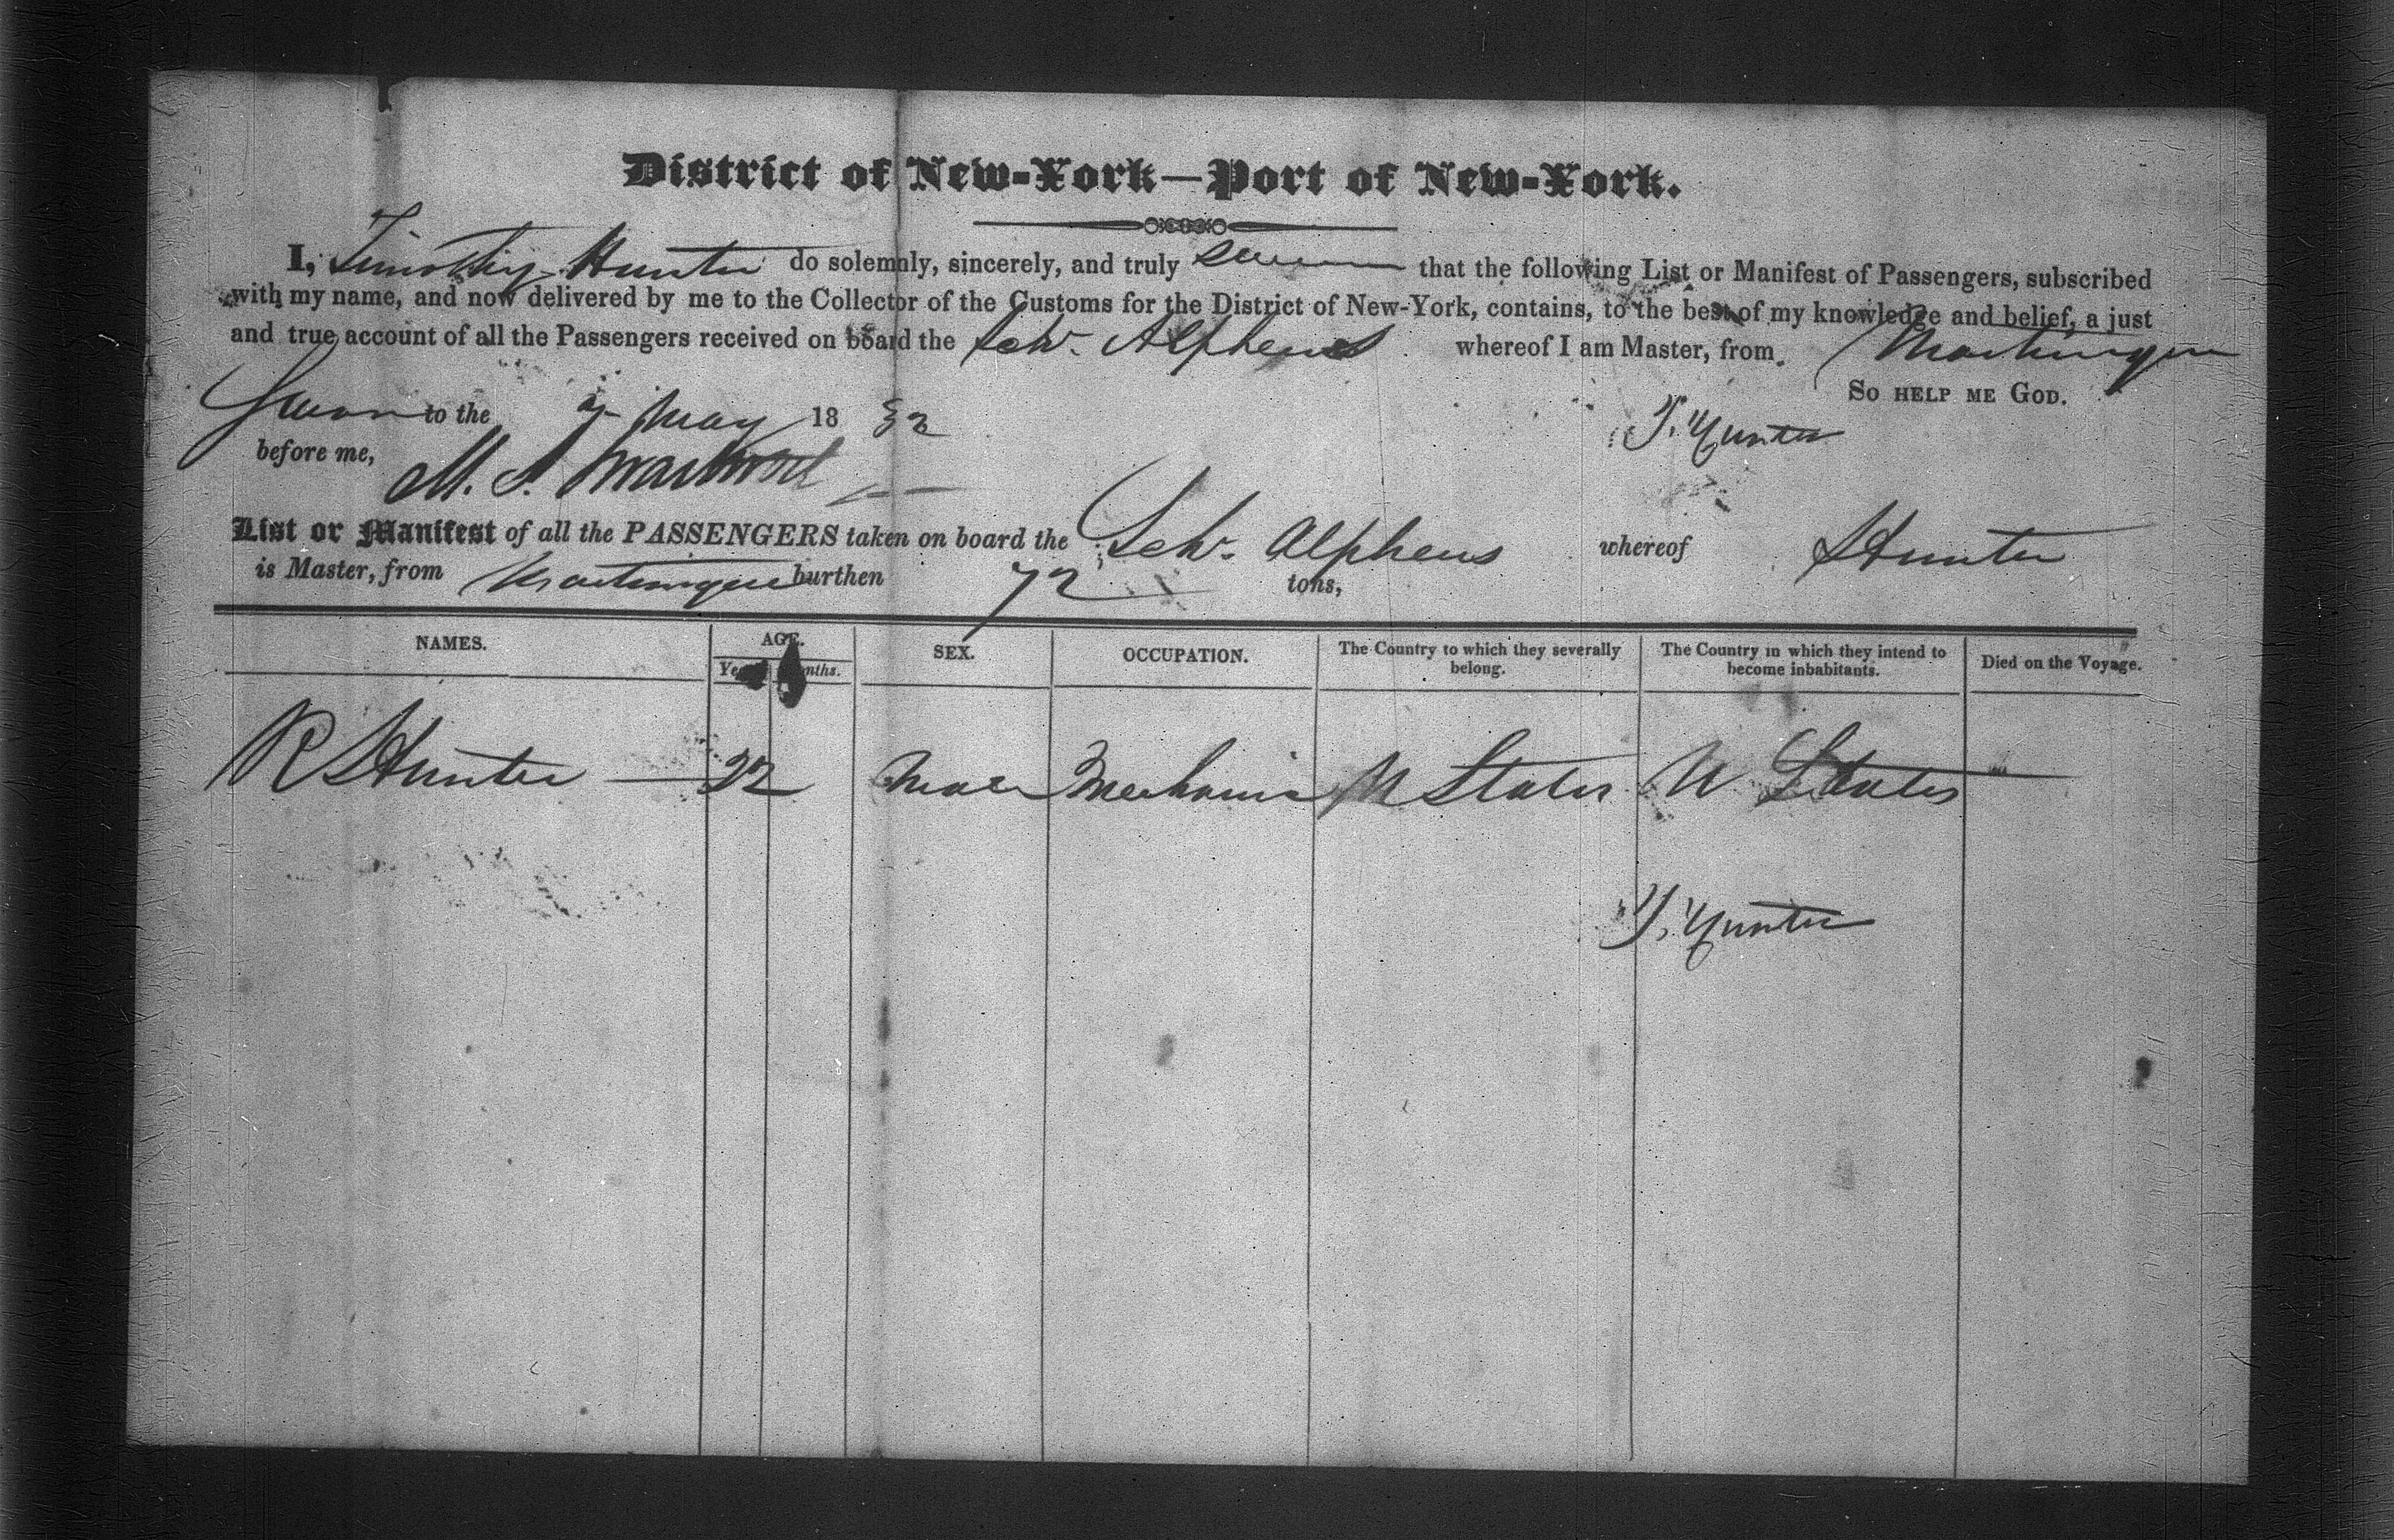 District of New-York—Port of New-York.
I, Timothy Hunter do solemnly, sincerely, and truly swear that the following List or Manifest of Passengers, subscribed
with my name, and now delivered by me to the Collector of the Customs for the District of New-York, contains, to the best of my knowledge and belief, a just
and true account of all the Passengers received on board the Schr. Alpheus whereof I am Master, from Martinique
So help me God.
Sworn to the May 1832
T. Hunter
before me,
M. S.
List or Manifest of all the PASSENGERS taken on board the Schr. Alpheus whereof Hunter
is Master, from Martinique burthen 72 tons,
NAMES. AGE. SEX. OCCUPATION. The Country to which they severally belong. The Country in which they intend to become inhabitants. Died on the Voyage.
Years Months.
R Hunter — 32 Male Mechanic U States U States
T. Hunter